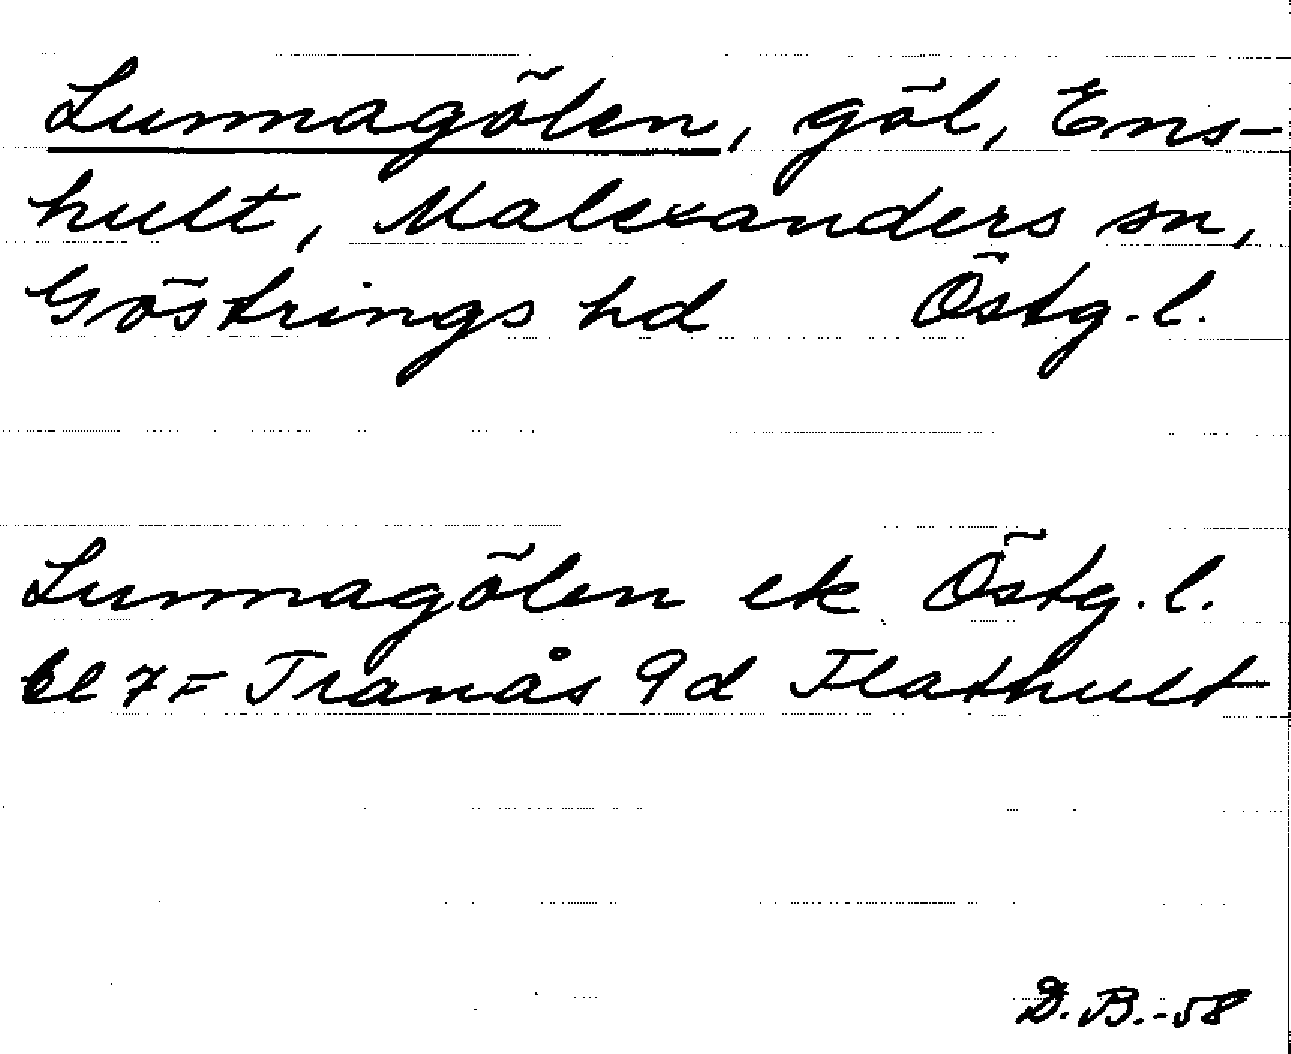 Lunnagölen, göl, Ens-
hult, Malexanders sn,
Göstrings hd Östg. l.
Lunnagölen ek Östg. l.
bl 7 = Tranås 9d Flathult
D. B. -58